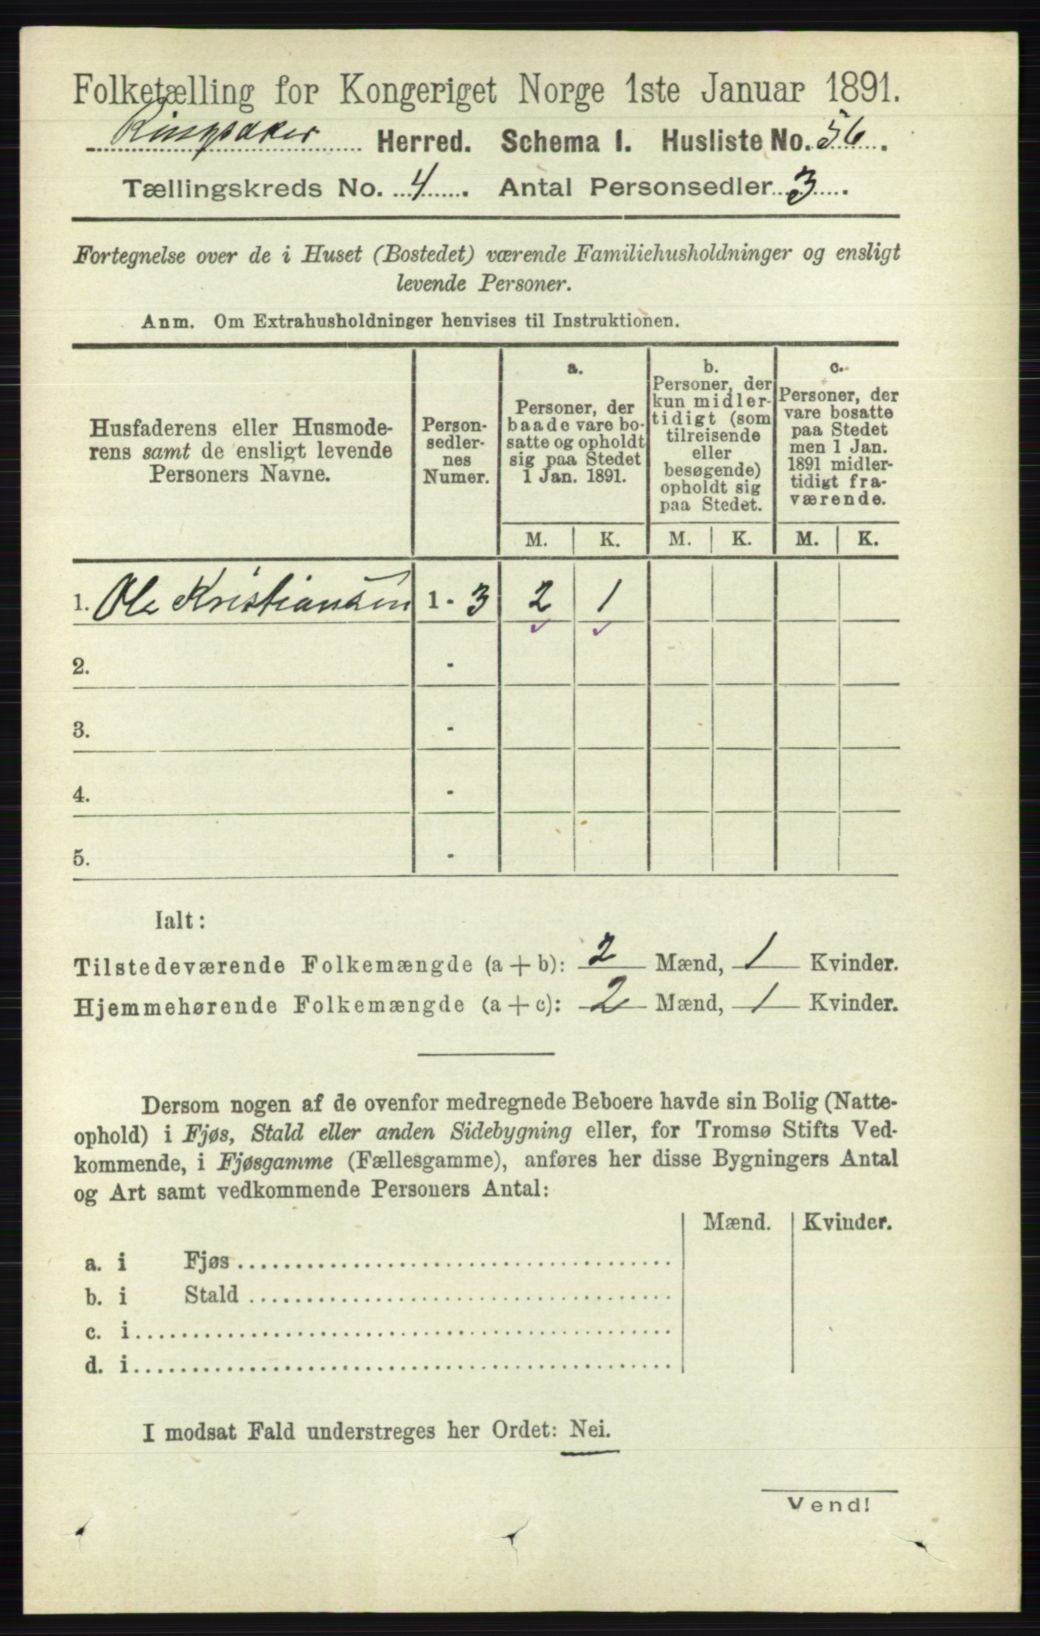 Folketælling for Kongeriget Norge 1ste Januar 1891.
Ringsaker Herred. Schema I. Husliste No. 56.
Tællingskreds No. 4. Antal Personsedler 3.
Fortegnelse over de i Huset (Bostedet) værende Familiehusholdninger og ensligt
levende Personer.
Anm. Om Extrahusholdninger henvises til Instruktionen.
Husfaderens eller Husmode-
rens samt de ensligt levende
Personers Navne.
Person-
sedler-
nes
Numer.
a.
Personer, der
baade vare bo-
satte og opholdt
sig paa Stedet
1 Jan. 1891.
b.
Personer, der
kun midler-
tidigt (som
tilreisende
eller
besøgende)
opholdt sig
paa Stedet.
c.
Personer, der
vare bosatte
paa Stedet
men 1 Jan.
1891 midler-
tidigt fra-
værende.
M. K. M. K. M. K.
1. Ole Kristiansen 1 - 3 2 1
2. -
3. -
4. -
5. -
Ialt:
Tilstedeværende Folkemængde (a + b): 2 Mænd, 1 Kvinder.
Hjemmehørende Folkemængde (a + c): 2 Mænd, 1 Kvinder.
Dersom nogen af de ovenfor medregnede Beboere havde sin Bolig (Natte-
ophold) i Fjøs, Stald eller anden Sidebygning eller, for Tromsø Stifts Ved-
kommende, i Fjøsgamme (Fællesgamme), anføres her disse Bygningers Antal
og Art samt vedkommende Personers Antal:
Mænd. Kvinder.
a. i Fjøs
b. i Stald
c. i
d. i
I modsat Fald understreges her Ordet: Nei.
Vend!